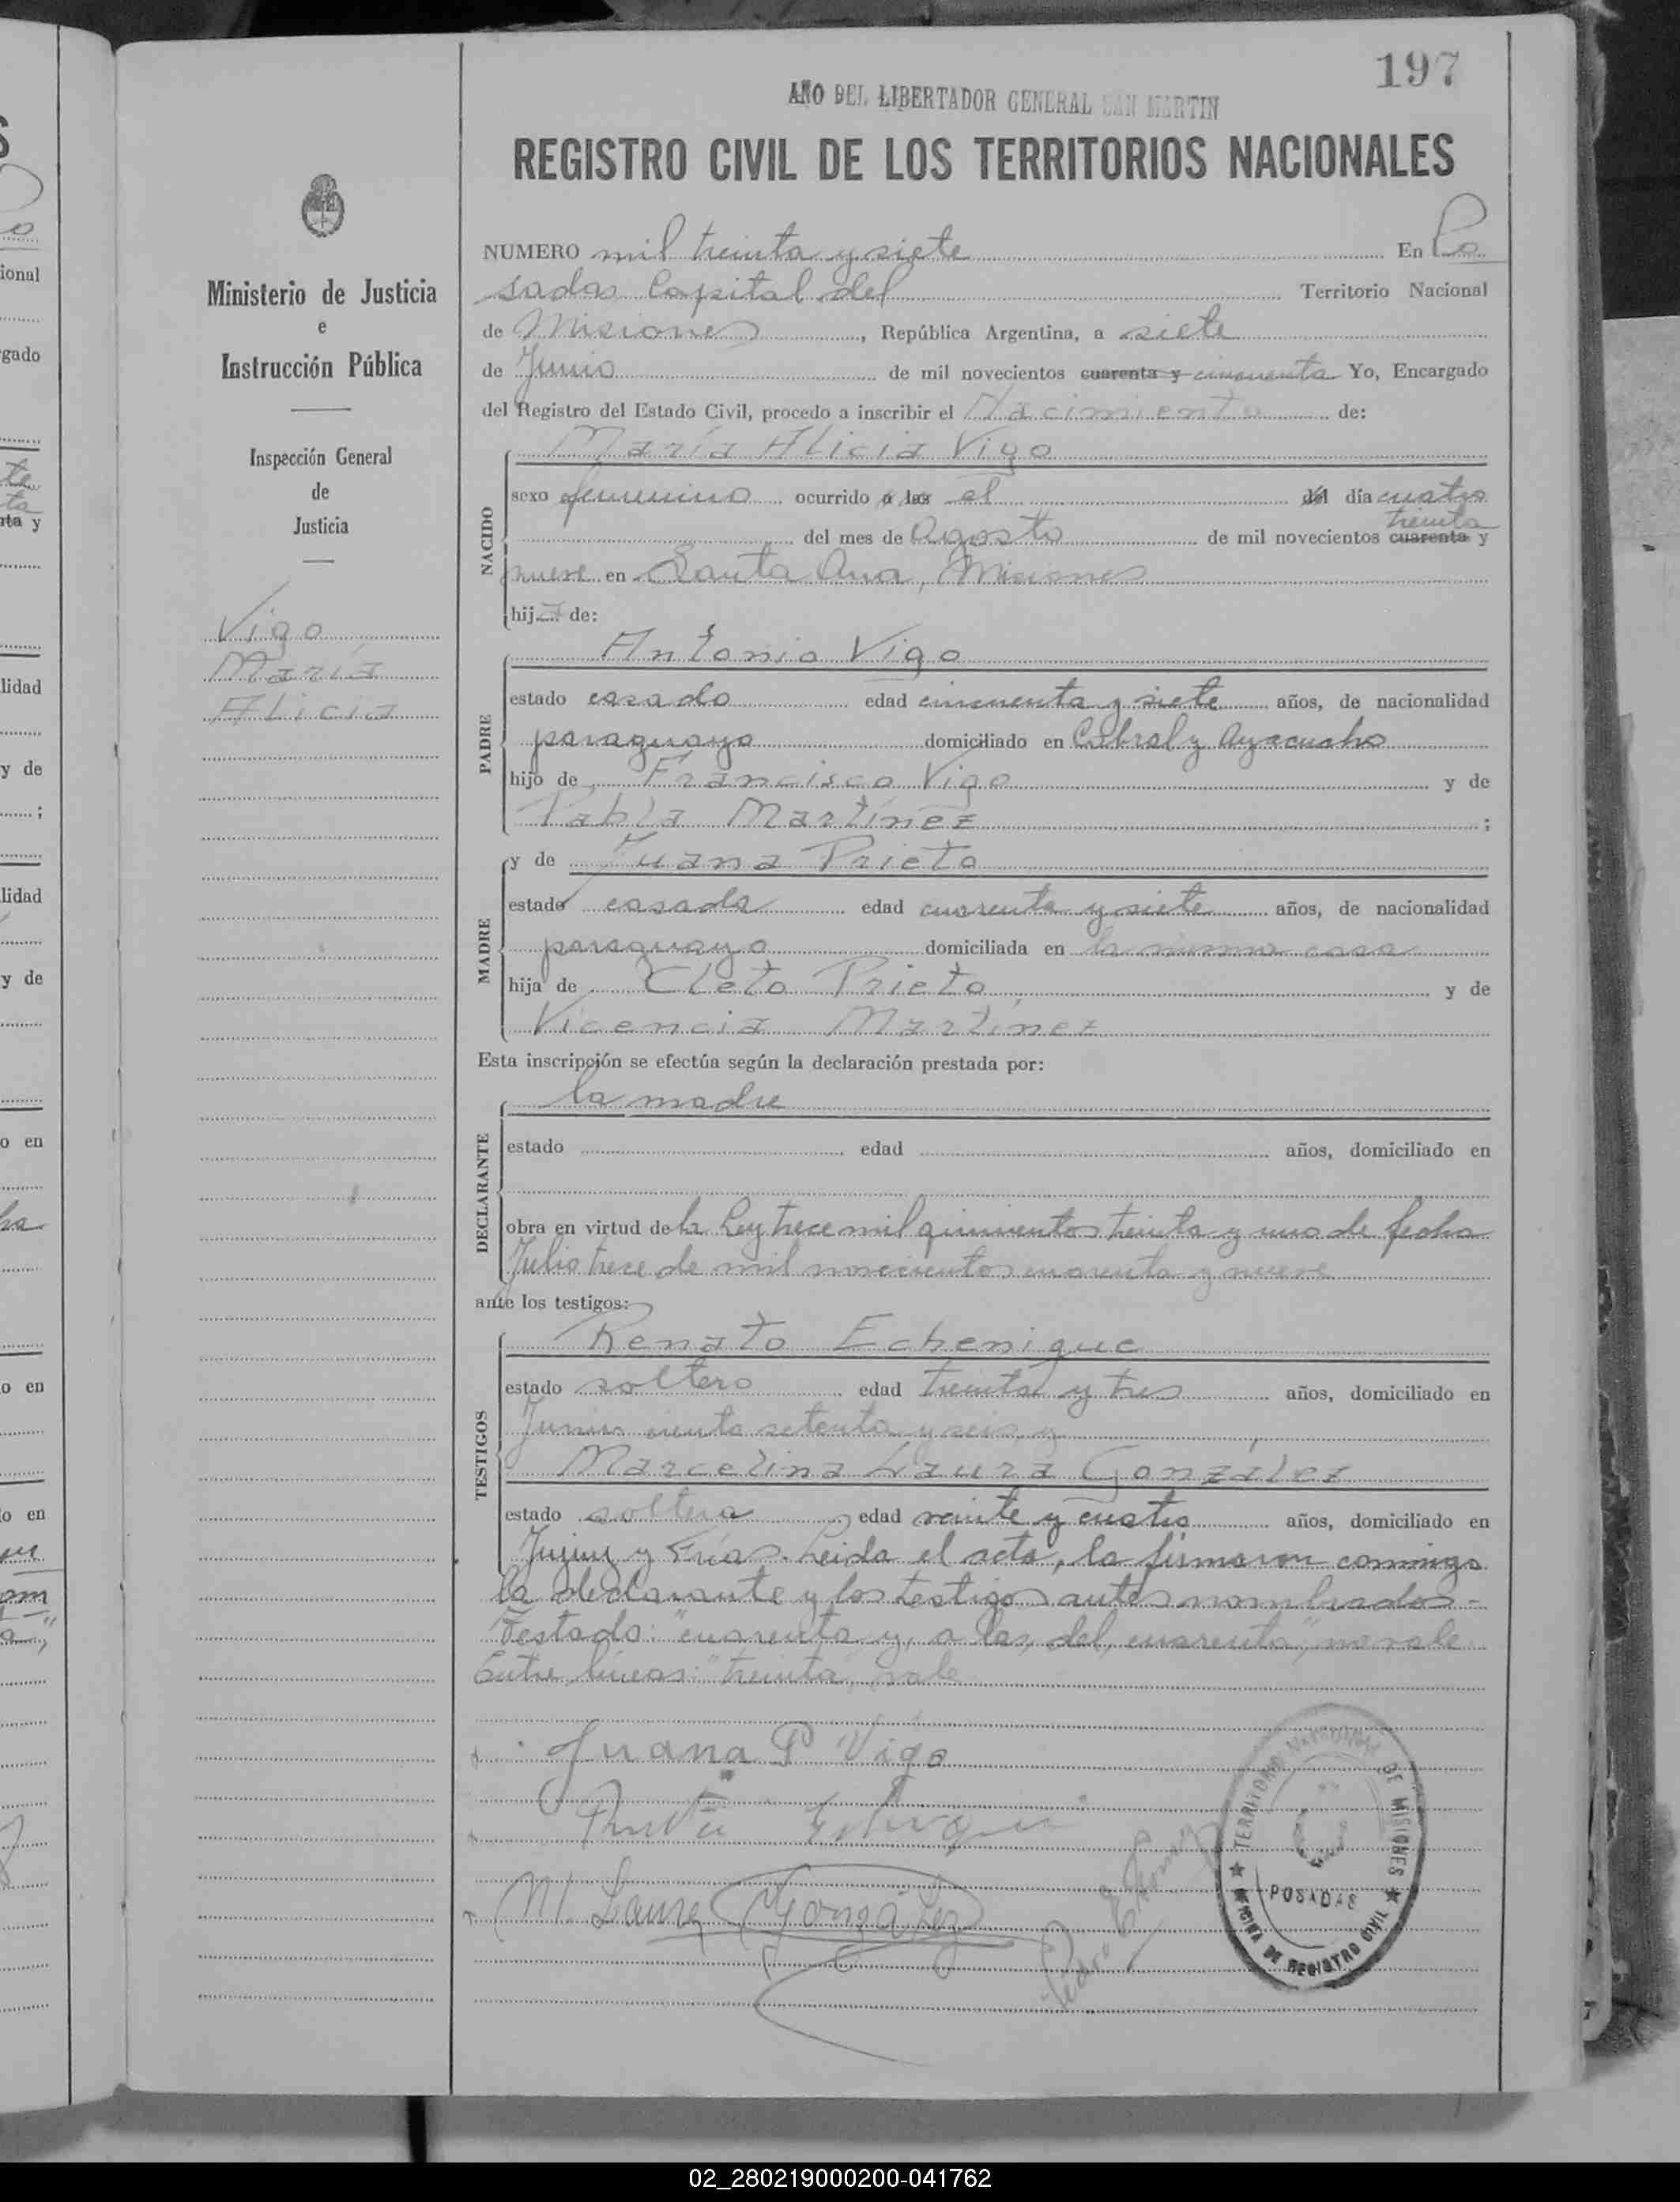 197
AÑO DEL LIBERTADOR GENERAL SAN MARTIN
REGISTRO CIVIL DE LOS TERRITORIOS NACIONALES
Ministerio de Justicia
e
Instrucción Pública
Inspección General
de
Justicia
Vigo
María
Alicia
NUMERO mil treinta y siete En Po
sadas Capital del Territorio Nacional
de Misiones, República Argentina, a siete
de Junio de mil novecientos cuarenta y cincuenta Yo, Encargado
del Registro del Estado Civil, procedo a inscribir el Nacimiento de:
NACIDO
María Alicia Vigo
sexo femenino ocurrido a las el del día cuatro
treinta
del mes de Agosto de mil novecientos cuarenta y
nueve en Santa Ana, Misiones
hija de:
PADRE
Antonio Vigo
estado casado edad cincuenta y siete años, de nacionalidad
paraguayo domiciliado en Cabral y Ayacucho
hijo de Francisco Vigo y de
Pabla Martínez ;
MADRE
y de Juana Prieto
estado casada edad cuarenta y siete años, de nacionalidad
paraguaya domiciliada en la misma casa
hija de Cleto Prieto y de
Vicencia Martínez
Esta inscripción se efectúa según la declaración prestada por:
DECLARANTE
la madre
estado edad años, domiciliado en
obra en virtud de la Ley trece mil quinientos treinta y uno de fecha
Julio trece de mil novecientos cuarenta y nueve
ante los testigos:
TESTIGOS
Renato Echenique
estado soltero edad treinta y tres años, domiciliado en
Junin ciento setenta y seis y
Marcelina Laura González
estado soltera edad veinte y cuatro años, domiciliado en
Jujuy y Frías. Leida el acta, la firmaron conmigo
la declarante y los testigos antes nombrados-
Testado: "cuarenta y, a las, del, cuarenta", no vale
Entre líneas: "treinta", vale
Juana P Vigo
M. Laura González
TERRITORIO NACIONAL DE MISIONES
POSADAS
OFICINA DE REGISTRO CIVIL
02_280219000200-041762